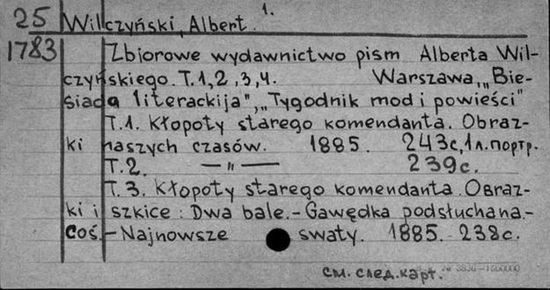 1.
25 Wilczyński, Albert.
1783 Zbiorowe wydawnictwo pism Alberta Wil-
czyńskiego. T.1,2,3,4. Warszawa, „Bie-
siada literackija", „Tygodnik mod i powieści"
T.1. Kłopoty starego komendanta. Obraz-
ki naszych czasów. 1885. 243с,1л.портр.
T.2. —〃— 239с.
T.3. Kłopoty starego komendanta. Obraz-
ki i szkice: Dwa bale.- Gawędka podsłuchana.-
Coś.- Najnowsze swaty. 1885. 238с.
см. след.карт.